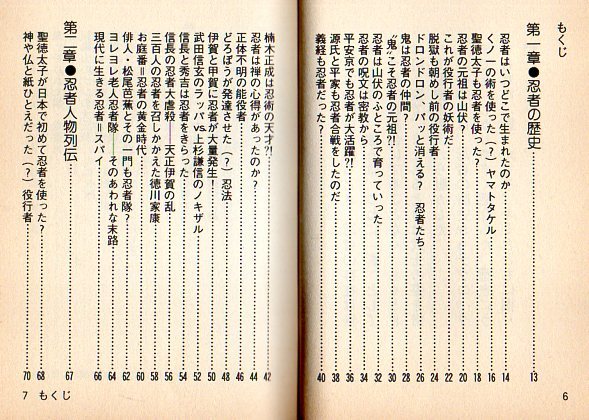 もくじ
第一章●忍者の歴史……13
忍者はいつどこで生まれたのか……14
くノ一の術を使った(?)ヤマトタケル……16
聖徳太子も忍者を使った?……18
忍者の元祖は山伏?……20
これが役行者の妖術だ……22
脱獄も朝めし前の役行者……24
ドロンドロン・パッと消える? 忍者たち……26
鬼は忍者の仲間?……28
"鬼"こそ忍者の元祖?!……30
忍者は山伏のふところで育っていった……32
忍者の呪文は密教から……34
平安京でも忍者が大活躍?!……36
源氏と平家も忍者合戦をしたのだ……38
義経も忍者だった?……40
6
楠木正成は忍術の天才?!……42
忍者は禅の心得があったのか?……44
正体不明の能役者……46
どろぼうが発達させた(?)忍法……48
伊賀と甲賀に忍者が大量発生!……50
武田信玄のラッパvs上杉謙信のノキザル……52
信長と秀吉は忍者をきらった……54
信長の忍者大虐殺――天正伊賀の乱……56
三百人の忍者を召しかかえた徳川家康……58
お庭番=忍者の黄金時代……60
俳人・松尾芭蕉とその一門も忍者隊?……62
ヨレヨレ老人忍者隊――そのあわれな末路……64
現代に生きる忍者=スパイ……66
第二章●忍者人物列伝……67
聖徳太子が日本で初めて忍者を使った?……68
神や仏と紙ひとえだった(?)役行者……70
7 もくじ